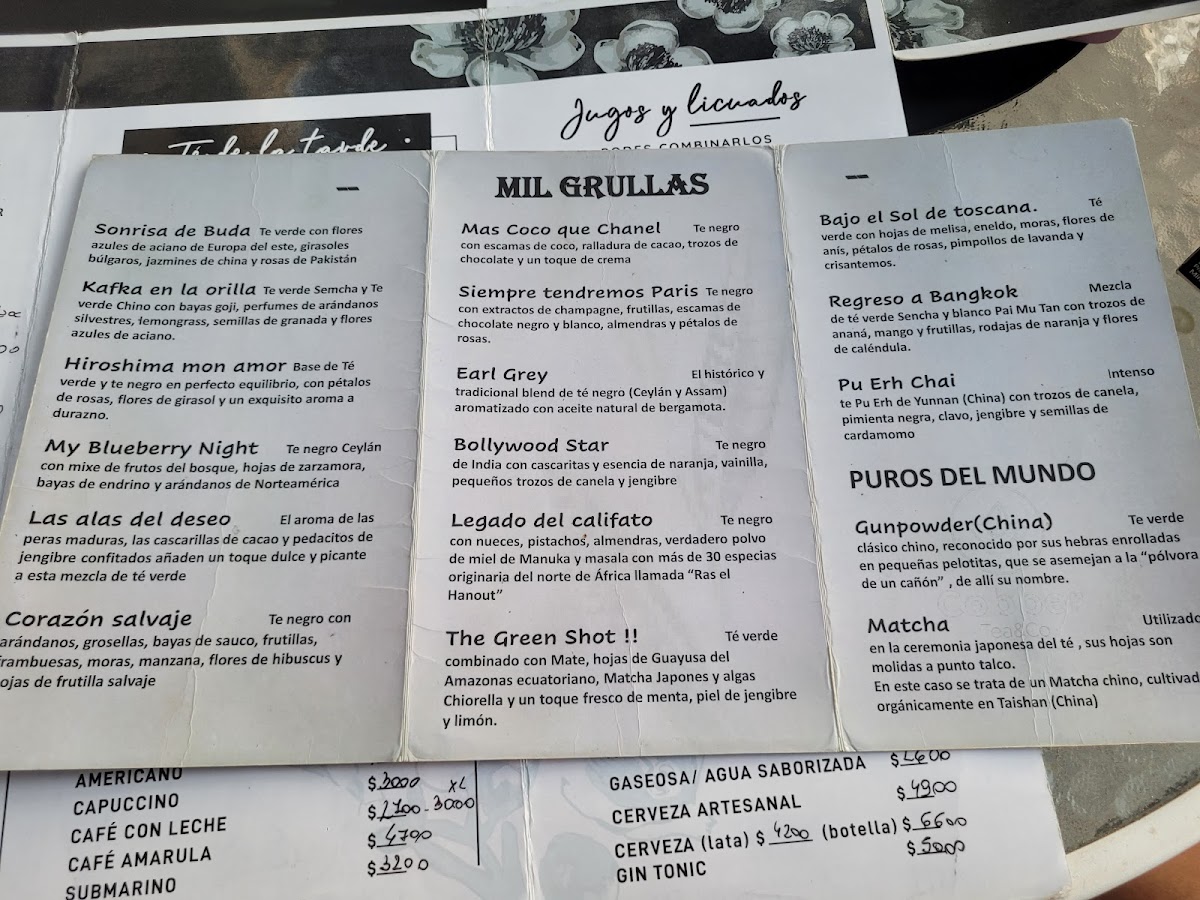 Té de la tarde
Jugos y licuados
PODES COMBINARLOS
Sonrisa de Buda Te verde con flores
azules de aciano de Europa del este, girasoles
búlgaros, jazmines de china y rosas de Pakistán
Kafka en la orilla Te verde Semcha y Te
verde Chino con bayas goji, perfumes de arándanos
silvestres, lemongrass, semillas de granada y flores
azules de aciano.
Hiroshima mon amor Base de Té
verde y te negro en perfecto equilibrio, con pétalos
de rosas, flores de girasol y un exquisito aroma a
durazno.
My Blueberry Night Te negro Ceylán
con mixe de frutos del bosque, hojas de zarzamora,
bayas de endrino y arándanos de Norteamérica
Las alas del deseo El aroma de las
peras maduras, las cascarillas de cacao y pedacitos de
jengibre confitados añaden un toque dulce y picante
a esta mezcla de té verde
Corazón salvaje Te negro con
arándanos, grosellas, bayas de sauco, frutillas,
frambuesas, moras, manzana, flores de hibuscus y
ojas de frutilla salvaje
MIL GRULLAS
Mas Coco que Chanel Te negro
con escamas de coco, ralladura de cacao, trozos de
chocolate y un toque de crema
Siempre tendremos Paris Te negro
con extractos de champagne, frutillas, escamas de
chocolate negro y blanco, almendras y pétalos de
rosas.
Earl Grey El histórico y
tradicional blend de té negro (Ceylán y Assam)
aromatizado con aceite natural de bergamota.
Bollywood Star Te negro
de India con cascaritas y esencia de naranja, vainilla,
pequeños trozos de canela y jengibre
Legado del califato Te negro
con nueces, pistachos, almendras, verdadero polvo
de miel de Manuka y masala con más de 30 especias
originaria del norte de África llamada “Ras el
Hanout”
The Green Shot !! Té verde
combinado con Mate, hojas de Guayusa del
Amazonas ecuatoriano, Matcha Japones y algas
Chiorella y un toque fresco de menta, piel de jengibre
y limón.
Bajo el Sol de toscana. Té
verde con hojas de melisa, eneldo, moras, flores de
anís, pétalos de rosas, pimpollos de lavanda y
crisantemos.
Regreso a Bangkok Mezcla
de té verde Sencha y blanco Pai Mu Tan con trozos de
ananá, mango y frutillas, rodajas de naranja y flores
de caléndula.
Pu Erh Chai Intenso
te Pu Erh de Yunnan (China) con trozos de canela,
pimienta negra, clavo, jengibre y semillas de
cardamomo
PUROS DEL MUNDO
Gunpowder(China) Te verde
clásico chino, reconocido por sus hebras enrolladas
en pequeñas pelotitas, que se asemejan a la “pólvora
de un cañón” , de allí su nombre.
Matcha Utilizado
en la ceremonia japonesa del té , sus hojas son
molidas a punto talco.
En este caso se trata de un Matcha chino, cultivad
orgánicamente en Taishan (China)
AMERICANO
CAPUCCINO $3000 XL
CAFÉ CON LECHE $2700-3000
CAFÉ AMARULA $4700
SUBMARINO $3200
GASEOSA/ AGUA SABORIZADA $2600
CERVEZA ARTESANAL $4900
CERVEZA (lata) $4200 (botella) $6600
GIN TONIC $5000